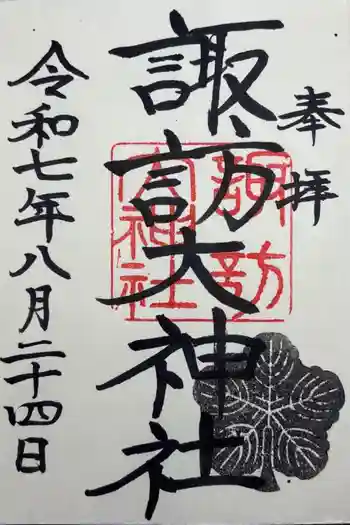 奉拝
諏訪大神社
令和七年八月二十四日
諏訪
大神社